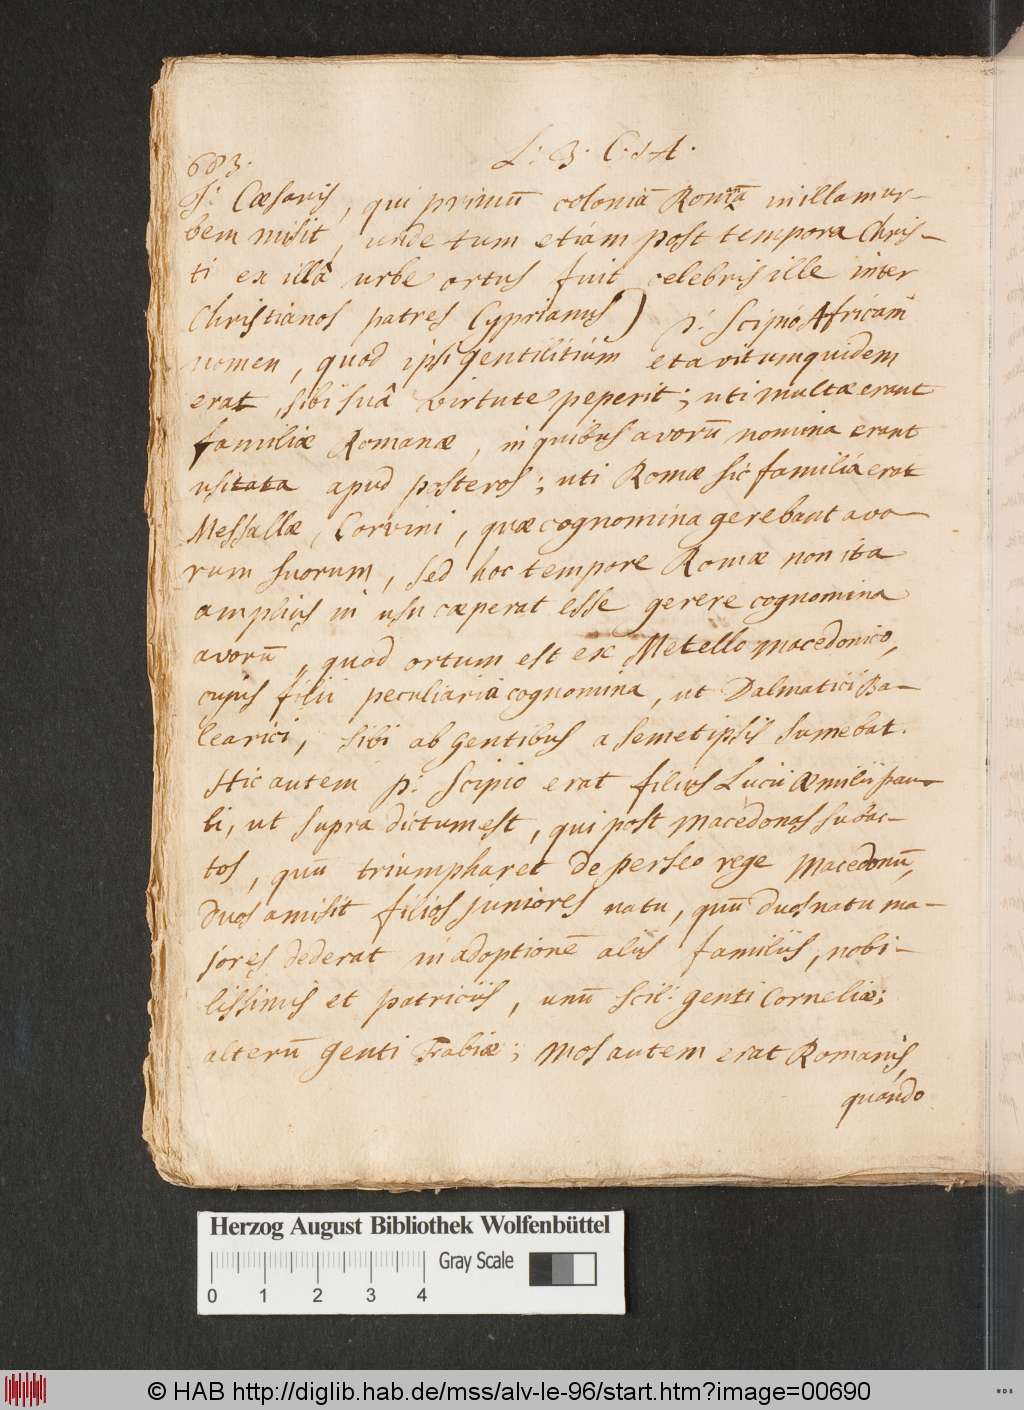 683.
L: 3. C: 1 A.
J: Cæsaris, qui primū coloniā Romā in illam ur-
bem misit, unde tum etiam post tempora Chris-
ti ex illâ urbe ortus fuit celebris ille inter
Christianos patres Cyprianus) P: Scipio Africanū
nomen, quod ipsi gentilitium et avitum quidem
erat, sibi suâ virtute peperit; uti multæ erant
familiæ Romanæ, in quibus avorū nomina erant
usitata apud posteros; uti Romæ sic familia erat
Messallæ, Corvini, quæ cognomina gerebant avo-
rum suorum, sed hoc tempore Romæ non ita
amplius in usu cæperat esse gerere cognomina
avorū, quod ortum est ex Metello Macedonico,
cujus filii peculiaria cognomina, ut Dalmatici Ba-
learici, sibi ab gentibus a semetipsis sumebat.
Hic autem P: Scipio erat filius Lucii Æmilii pau-
li, ut supra dictum est, qui post Macedonas subac-
tos, quū triumpharet de perseo rege Macedonū,
duos amisit filios juniores natu, quū duos natu ma-
jores dederat in adoptionē aliis familiis, nobi-
lissimis et patriciis, unū scil: genti Corneliæ;
alterū genti Fabiæ; Mos autem erat Romanis,
quando
Herzog August Bibliothek Wolfenbüttel
Gray Scale
0 1 2 3 4
© HAB http://diglib.hab.de/mss/alv-le-96/start.htm?image=00690